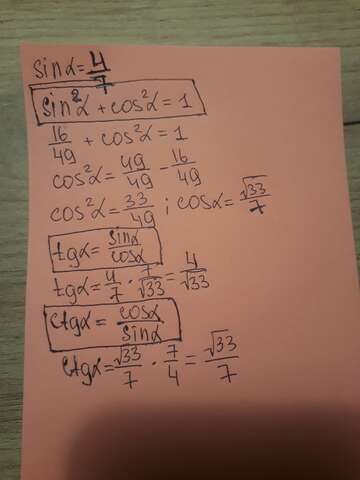 sinα = 4/7
sin²α + cos²α = 1
16/49 + cos²α = 1
cos²α = 49/49 - 16/49
cos²α = 33/49 ; cosα = √33/7
tgα = sinα/cosα
tgα = 4/7 · 7/√33 = 4/√33
ctgα = cosα/sinα
ctgα = √33/7 · 7/4 = √33/7